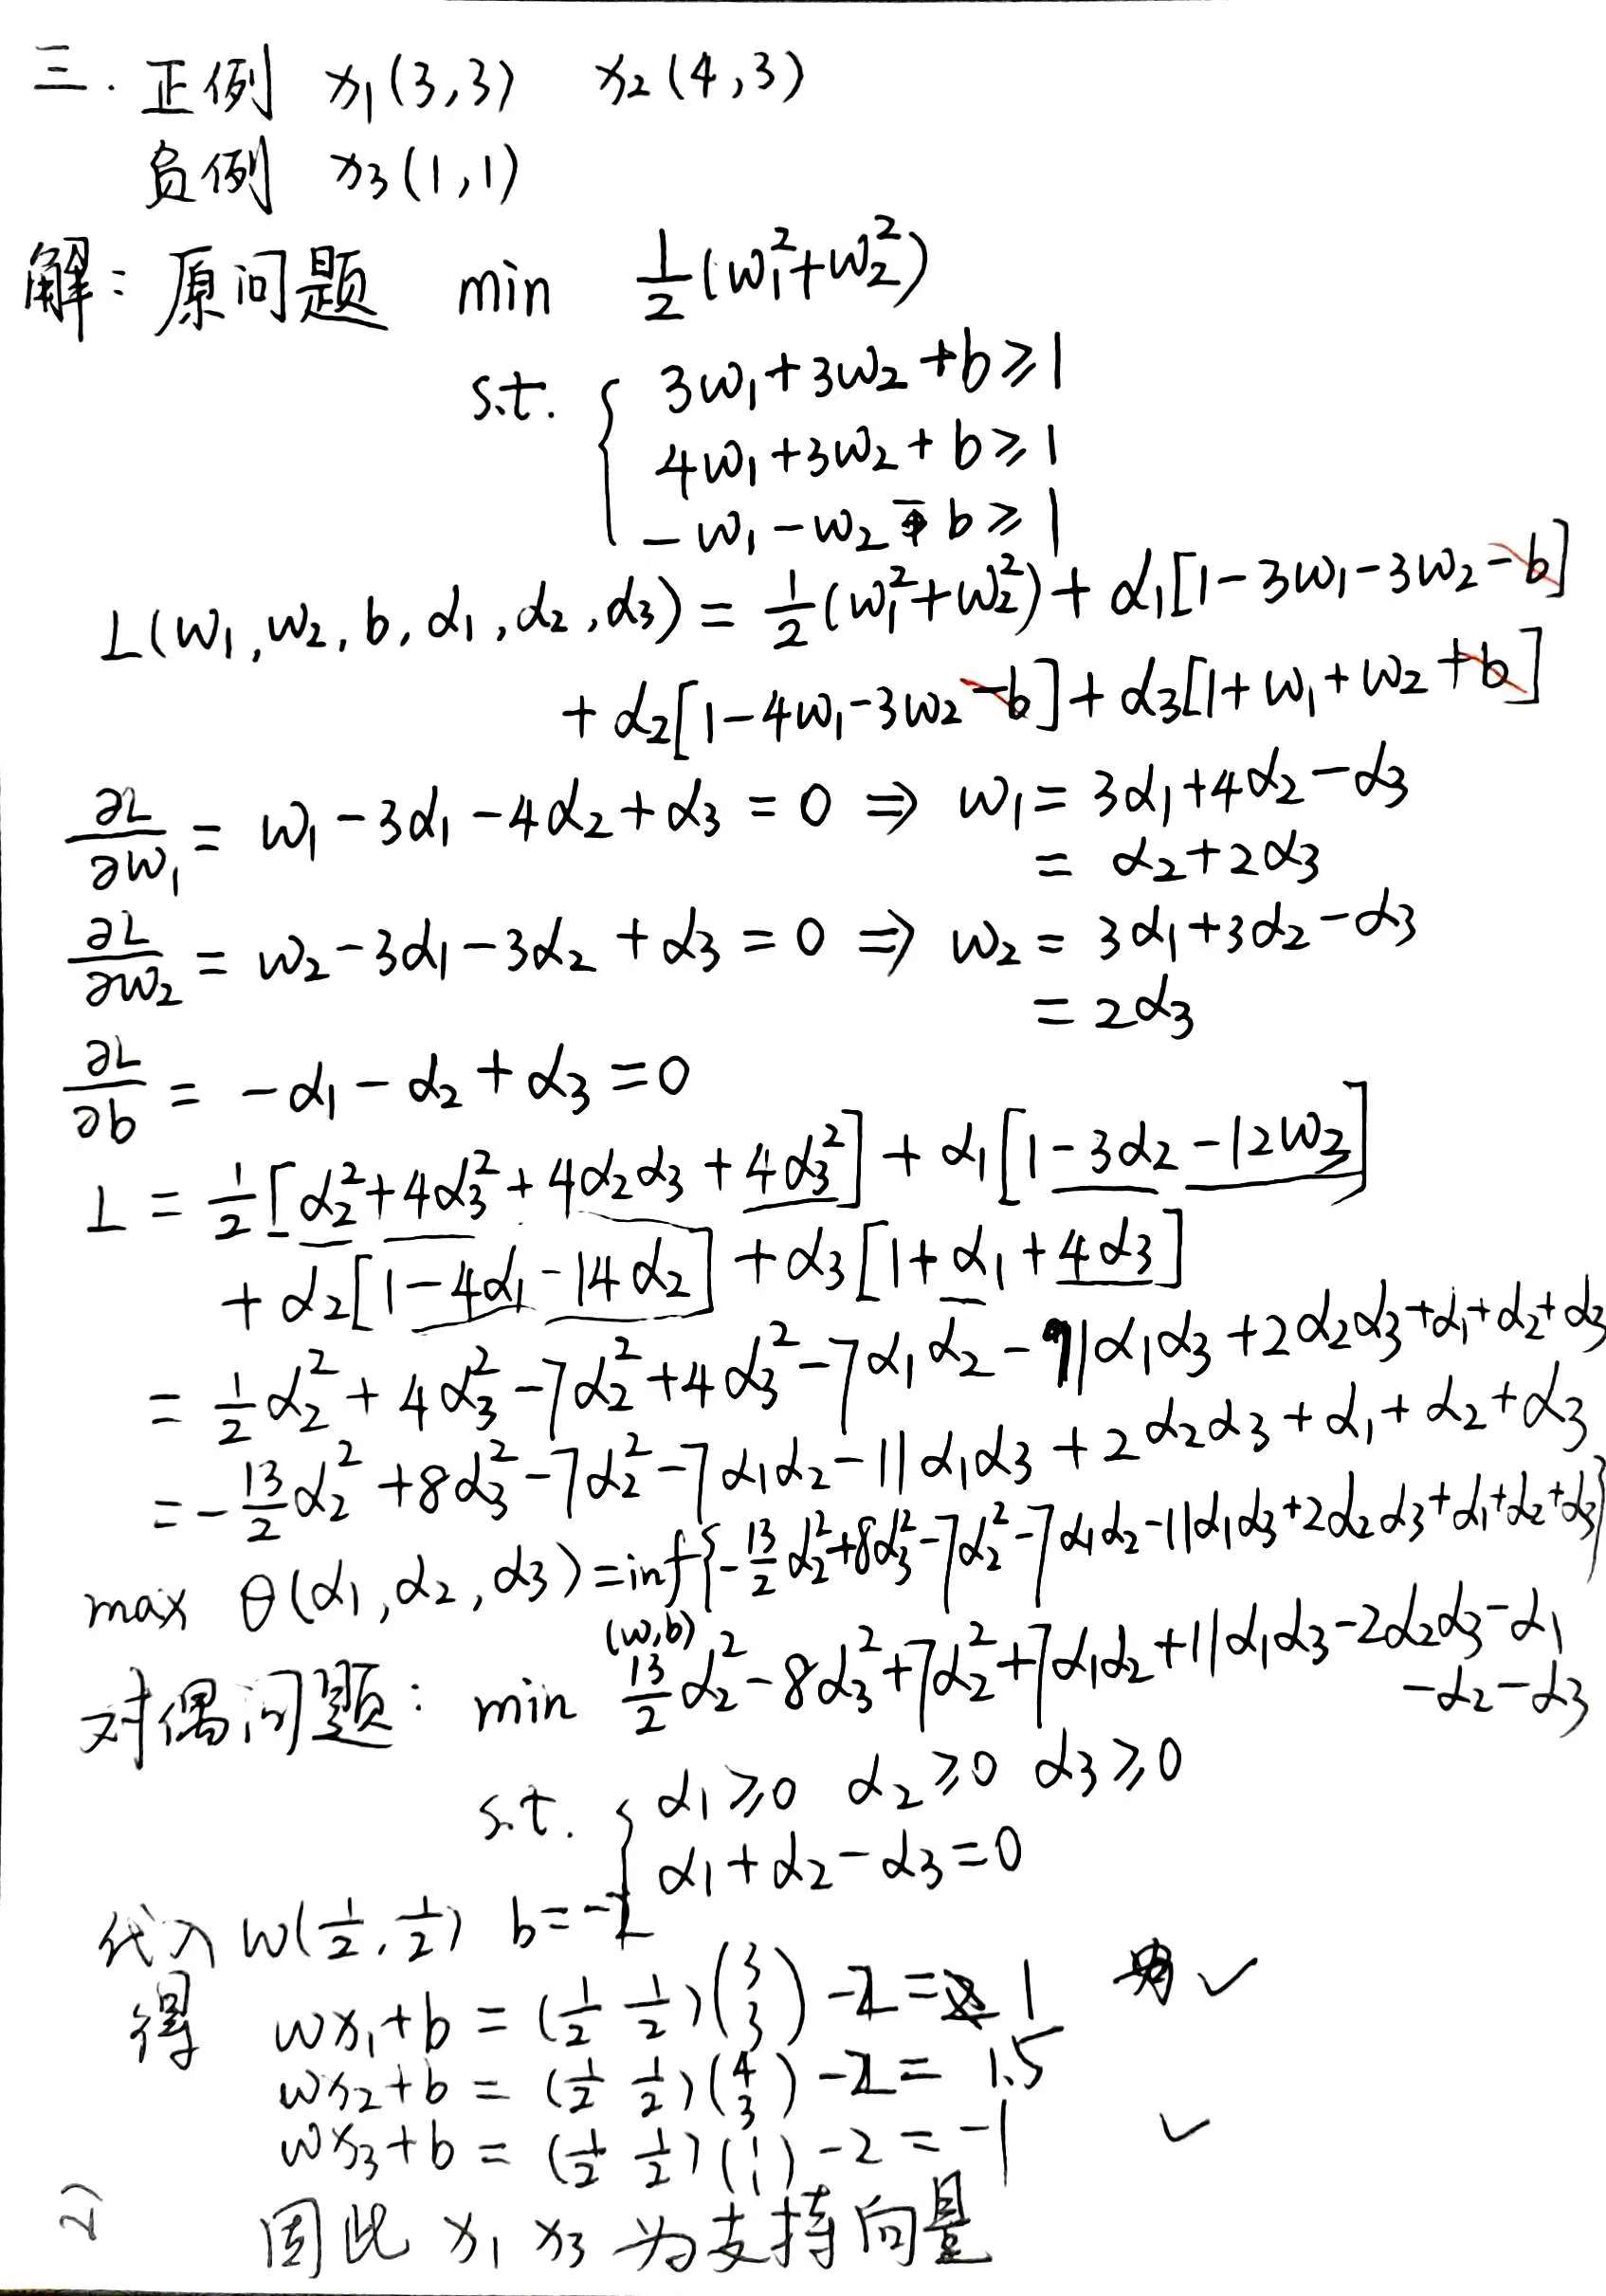 三. 正例 x₁(3,3) x₂(4,3)
负例 x₃(1,1)
解: 原问题 min ½(w₁²+w₂²)
s.t. { 3w₁+3w₂+b≥1
4w₁+3w₂+b≥1
-w₁-w₂-b≥1
L(w₁,w₂,b,α₁,α₂,α₃) = ½(w₁²+w₂²)+α₁[1-3w₁-3w₂-b]
+α₂[1-4w₁-3w₂-b]+α₃[1+w₁+w₂+b]
∂L/∂w₁ = w₁-3α₁-4α₂+α₃=0 ⇒ w₁=3α₁+4α₂-α₃
= α₂+2α₃
∂L/∂w₂ = w₂-3α₁-3α₂+α₃=0 ⇒ w₂=3α₁+3α₂-α₃
= 2α₃
∂L/∂b = -α₁-α₂+α₃=0
L = ½[α₂²+4α₃²+4α₂α₃+4α₃²]+α₁[1-3α₂-12w₃]
+α₂[1-4α₁-14α₂]+α₃[1+α₁+4α₃]
= ½α₂²+4α₃²-7α₂²+4α₃²-7α₁α₂-11α₁α₃+2α₂α₃+α₁+α₂+α₃
= -13/2α₂²+8α₃²-7α₂²-7α₁α₂-11α₁α₃+2α₂α₃+α₁+α₂+α₃
max θ(α₁,α₂,α₃)=inf{-13/2α₂²+8α₃²-7α₂²-7α₁α₂-11α₁α₃+2α₂α₃+α₁+α₂+α₃}
(w,b)
对偶问题: min 13/2α₂²-8α₃²+7α₂²+7α₁α₂+11α₁α₃-2α₂α₃-α₁
-α₂-α₃
s.t. { α₁≥0 α₂≥0 α₃≥0
α₁+α₂-α₃=0
代入 w(½,½) b=-2
得 wx₁+b=(½ ½)(3 3)-2=1 ✓
wx₂+b=(½ ½)(4 3)-2=1.5
wx₃+b=(½ ½)(1 1)-2=-1 ✓
2) 因此 x₁ x₃ 为支持向量